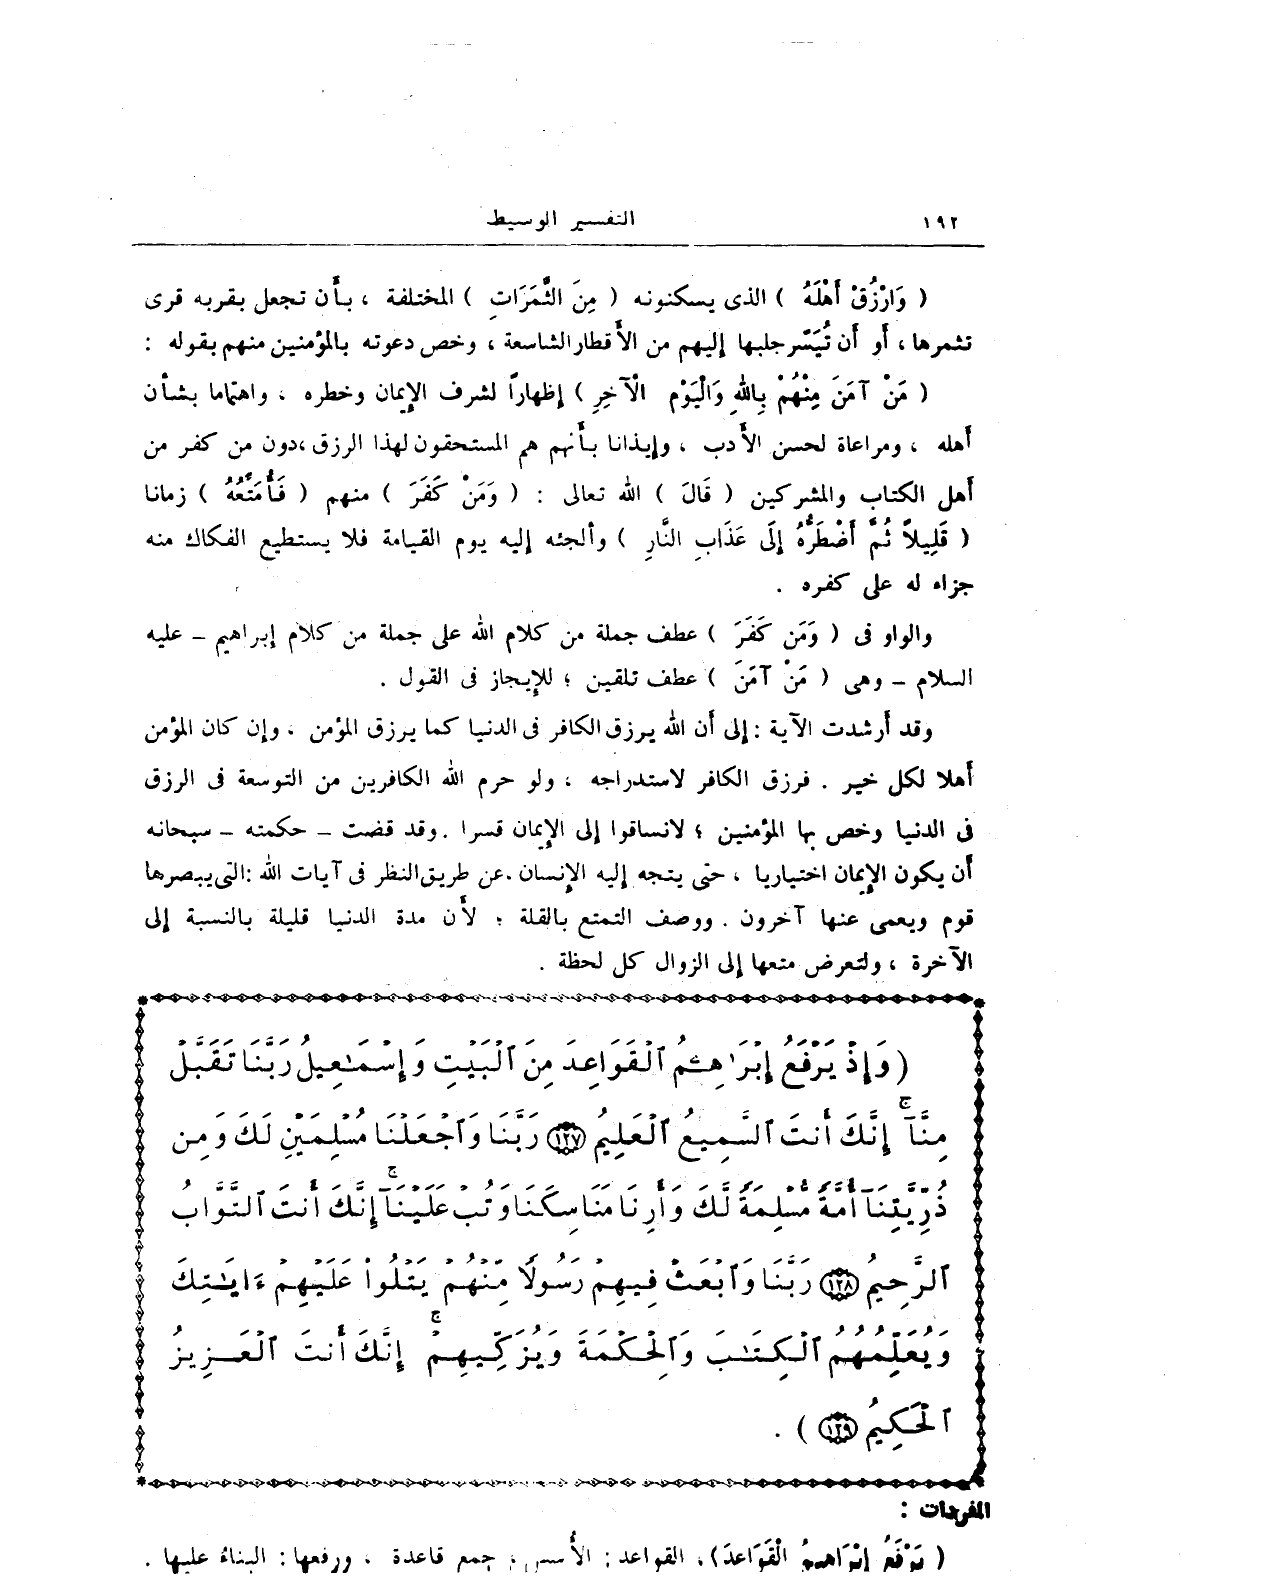 ١٩٢
التفسير الوسيط
( وَارْزُقْ أَهْلَهُ ) الذى يسكنونه ( مِنَ الثَّمَرَاتِ ) المختلفة ، بأن تجعل بقربه قرى
تثمرها ، أو أن تُيَسِّر جلبها إليهم من الأقطار الشاسعة ، وخص دعوته بالمؤمنين منهم بقوله :
( مَنْ آمَنَ مِنْهُمْ بِاللهِ وَالْيَوْمِ الْآخِرِ ) إظهاراً لشرف الإيمان وخطره ، واهتماما بشأن
أهله ، ومراعاة لحسن الأدب ، وإيذانا بأنهم هم المستحقون لهذا الرزق ،دون من كفر من
أهل الكتاب والمشركين ( قَالَ ) الله تعالى : ( وَمَنْ كَفَرَ ) منهم ( فَأُمَتِّعُهُ ) زمانا
( قَلِيلاً ثُمَّ أَضْطَرُّهُ إِلَى عَذَابِ النَّارِ ) وألجئه إليه يوم القيامة فلا يستطيع الفكاك منه
جزاء له على كفره .
والواو فى ( وَمَن كَفَرَ ) عطف جملة من كلام الله على جملة من كلام إبراهيم – عليه
السلام – وهى ( مَنْ آمَنَ ) عطف تلقين ؛ للإيجاز فى القول .
وقد أرشدت الآية : إلى أن الله يرزق الكافر فى الدنيا كما يرزق المؤمن ، وإن كان المؤمن
أهلا لكل خير . فرزق الكافر لاستدراجه ، ولو حرم الله الكافرين من التوسعة فى الرزق
فى الدنيا وخص بها المؤمنين ؛ لانساقوا إلى الإيمان قسرا . وقد قضت – حكمته – سبحانه
أن يكون الإيمان اختياريا ، حتى يتجه إليه الإنسان . عن طريق النظر فى آيات الله : التى يبصرها
قوم ويعمى عنها آخرون . ووصف التمتع بالقلة ؛ لأن مدة الدنيا قليلة بالنسبة إلى
الآخرة ، ولتعرض متعها إلى الزوال كل لحظة .
( وَإِذْ يَرْفَعُ إِبْرَٰهِـۧمُ ٱلْقَوَاعِدَ مِنَ ٱلْبَيْتِ وَإِسْمَـٰعِيلُ رَبَّنَا تَقَبَّلْ
مِنَّآ ۖ إِنَّكَ أَنتَ ٱلسَّمِيعُ ٱلْعَلِيمُ ١٢٧ رَبَّنَا وَٱجْعَلْنَا مُسْلِمَيْنِ لَكَ وَمِن
ذُرِّيَّتِنَآ أُمَّةً مُّسْلِمَةً لَّكَ وَأَرِنَا مَنَاسِكَنَا وَتُبْ عَلَيْنَآ ۚ إِنَّكَ أَنتَ ٱلتَّوَّابُ
ٱلرَّحِيمُ ١٢٨ رَبَّنَا وَٱبْعَثْ فِيهِمْ رَسُولًا مِّنْهُمْ يَتْلُوا۟ عَلَيْهِمْ ءَايَـٰتِكَ
وَيُعَلِّمُهُمُ ٱلْكِتَـٰبَ وَٱلْحِكْمَةَ وَيُزَكِّيهِمْ ۚ إِنَّكَ أَنتَ ٱلْعَزِيزُ
ٱلْحَكِيمُ ١٢٩ ) .
المفردات :
( يَرْفَعُ إِبْرَاهِيمُ الْقَوَاعِدَ ) ، القواعد : الأسس ، جمع قاعدة ، ورفعها : البناءُ عليها .